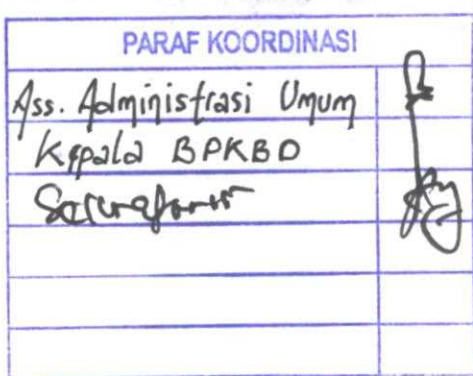 PARAF KOORDINASI
Ass. Administrasi Umum
Kepala BPKBD